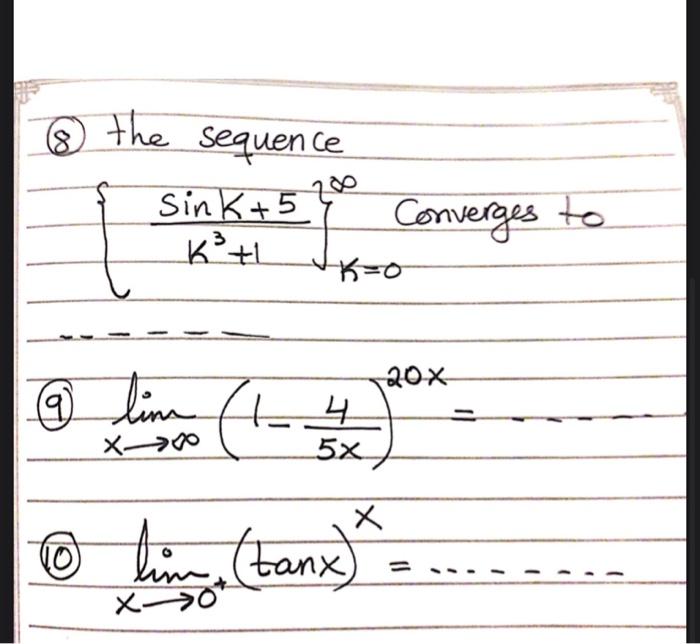 ⑧ the sequence
{ (sin K + 5) / (K³ + 1) }^∞_{K=0} Converges to
_ _ _ _ _ _
⑨ lim_{x→∞} (1 - 4/(5x))^{20x} = - - - - - -
⑩ lim_{x→0⁺} (tanx)^x = - - - - - - - -